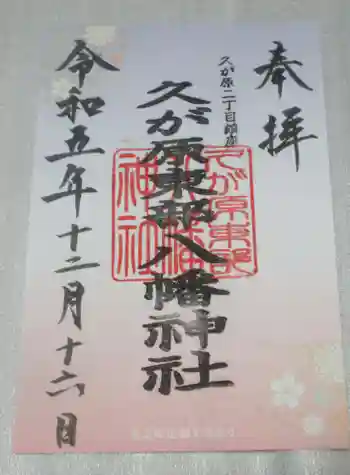 奉拝
久が原二丁目鎮座
久が原東部八幡神社
久が原東部
八幡
神社
令和五年十二月十六日